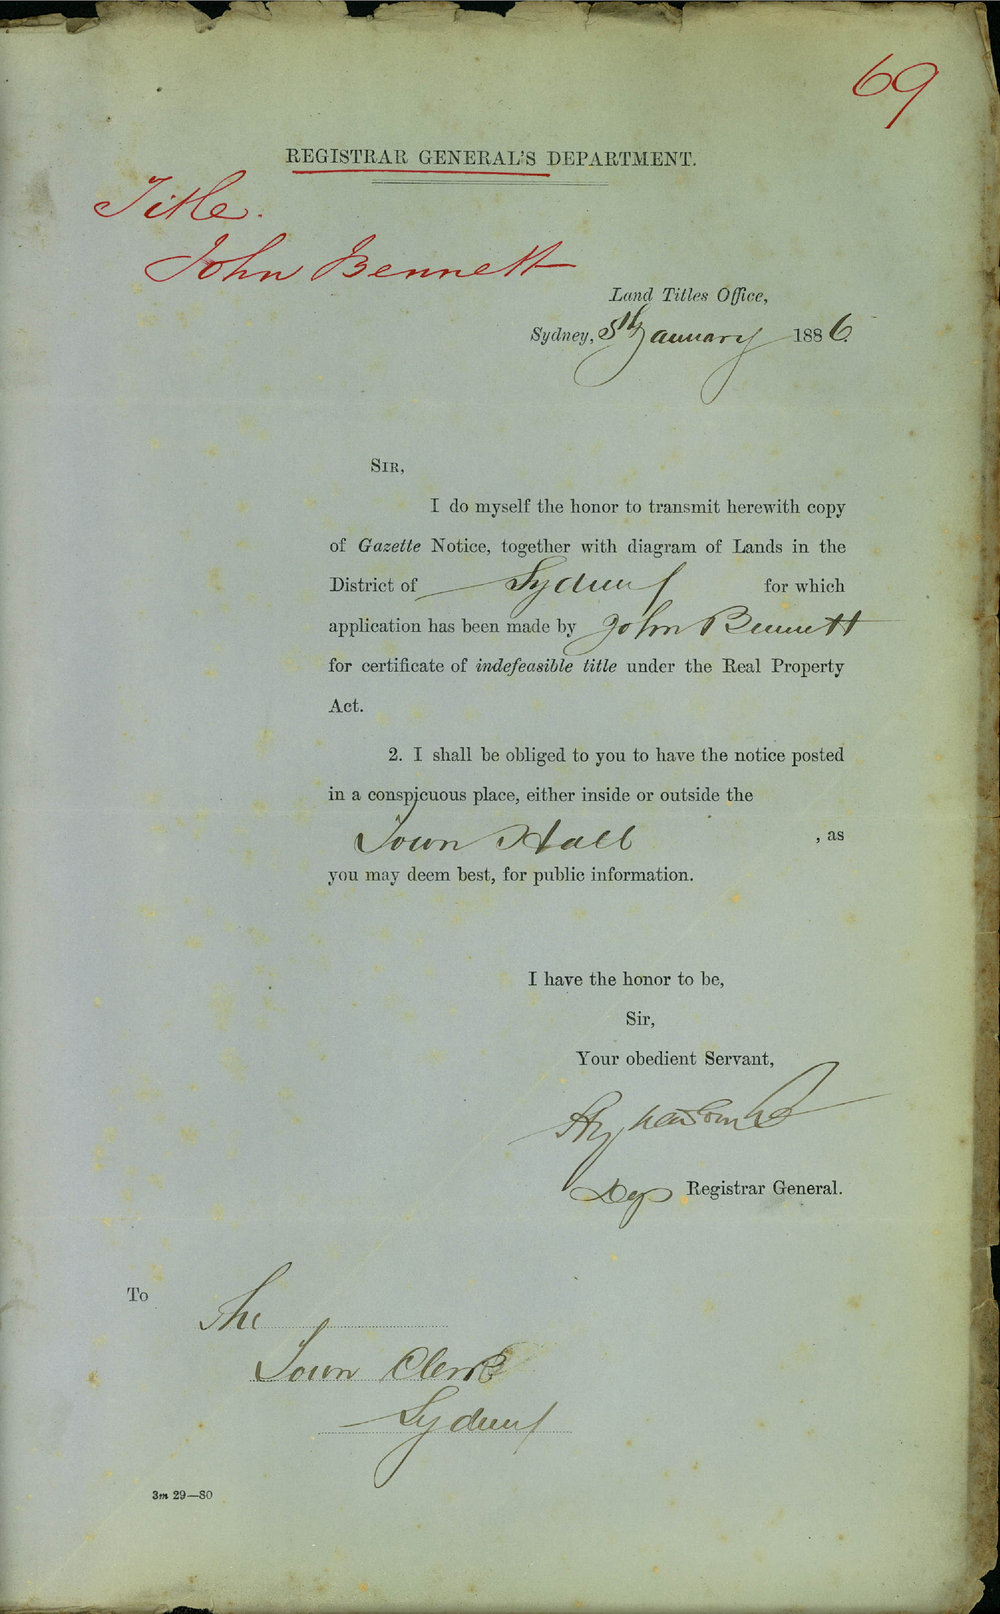 69
REGISTRAR GENERAL'S DEPARTMENT.
Title.
John Bennett
Land Titles Office,
Sydney, 5th January 1886.
SIR,
I do myself the honor to transmit herewith copy
of Gazette Notice, together with diagram of Lands in the
District of Sydney for which
application has been made by John Bennett
for certificate of indefeasible title under the Real Property
Act.
2. I shall be obliged to you to have the notice posted
in a conspicuous place, either inside or outside the
Town Hall , as
you may deem best, for public information.
I have the honor to be,
Sir,
Your obedient Servant,
Dep Registrar General.
To
The
Town Clerk
Sydney
3m 29—80